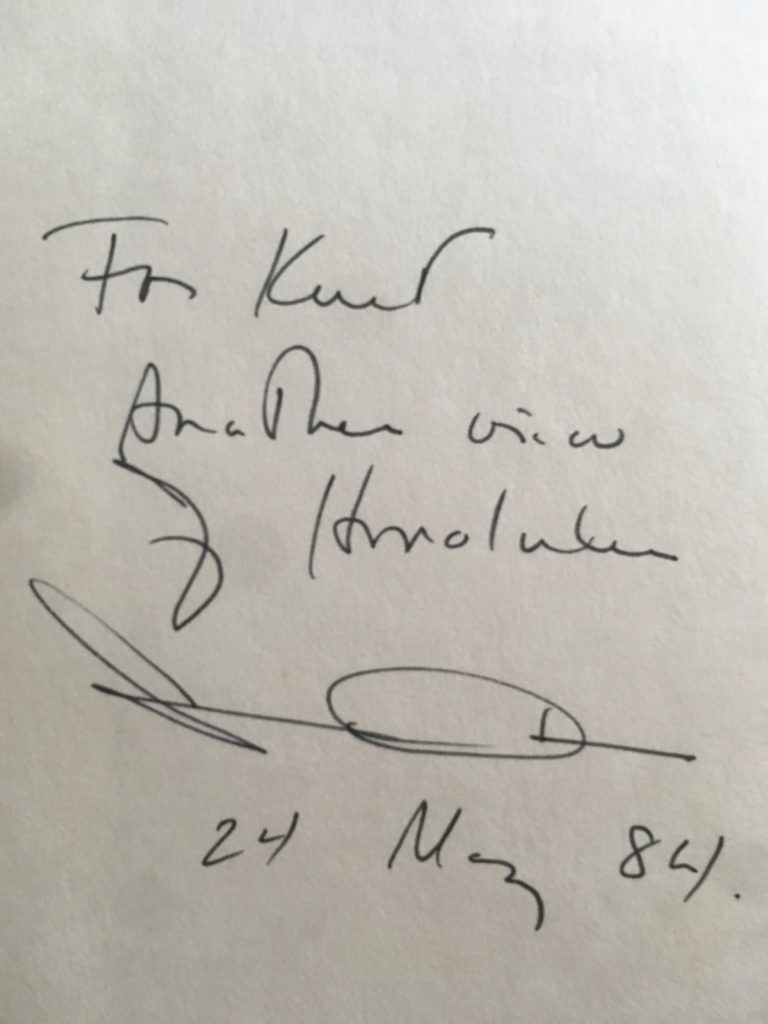 For Kurt
Another view
of Honolulu
24 May 84.